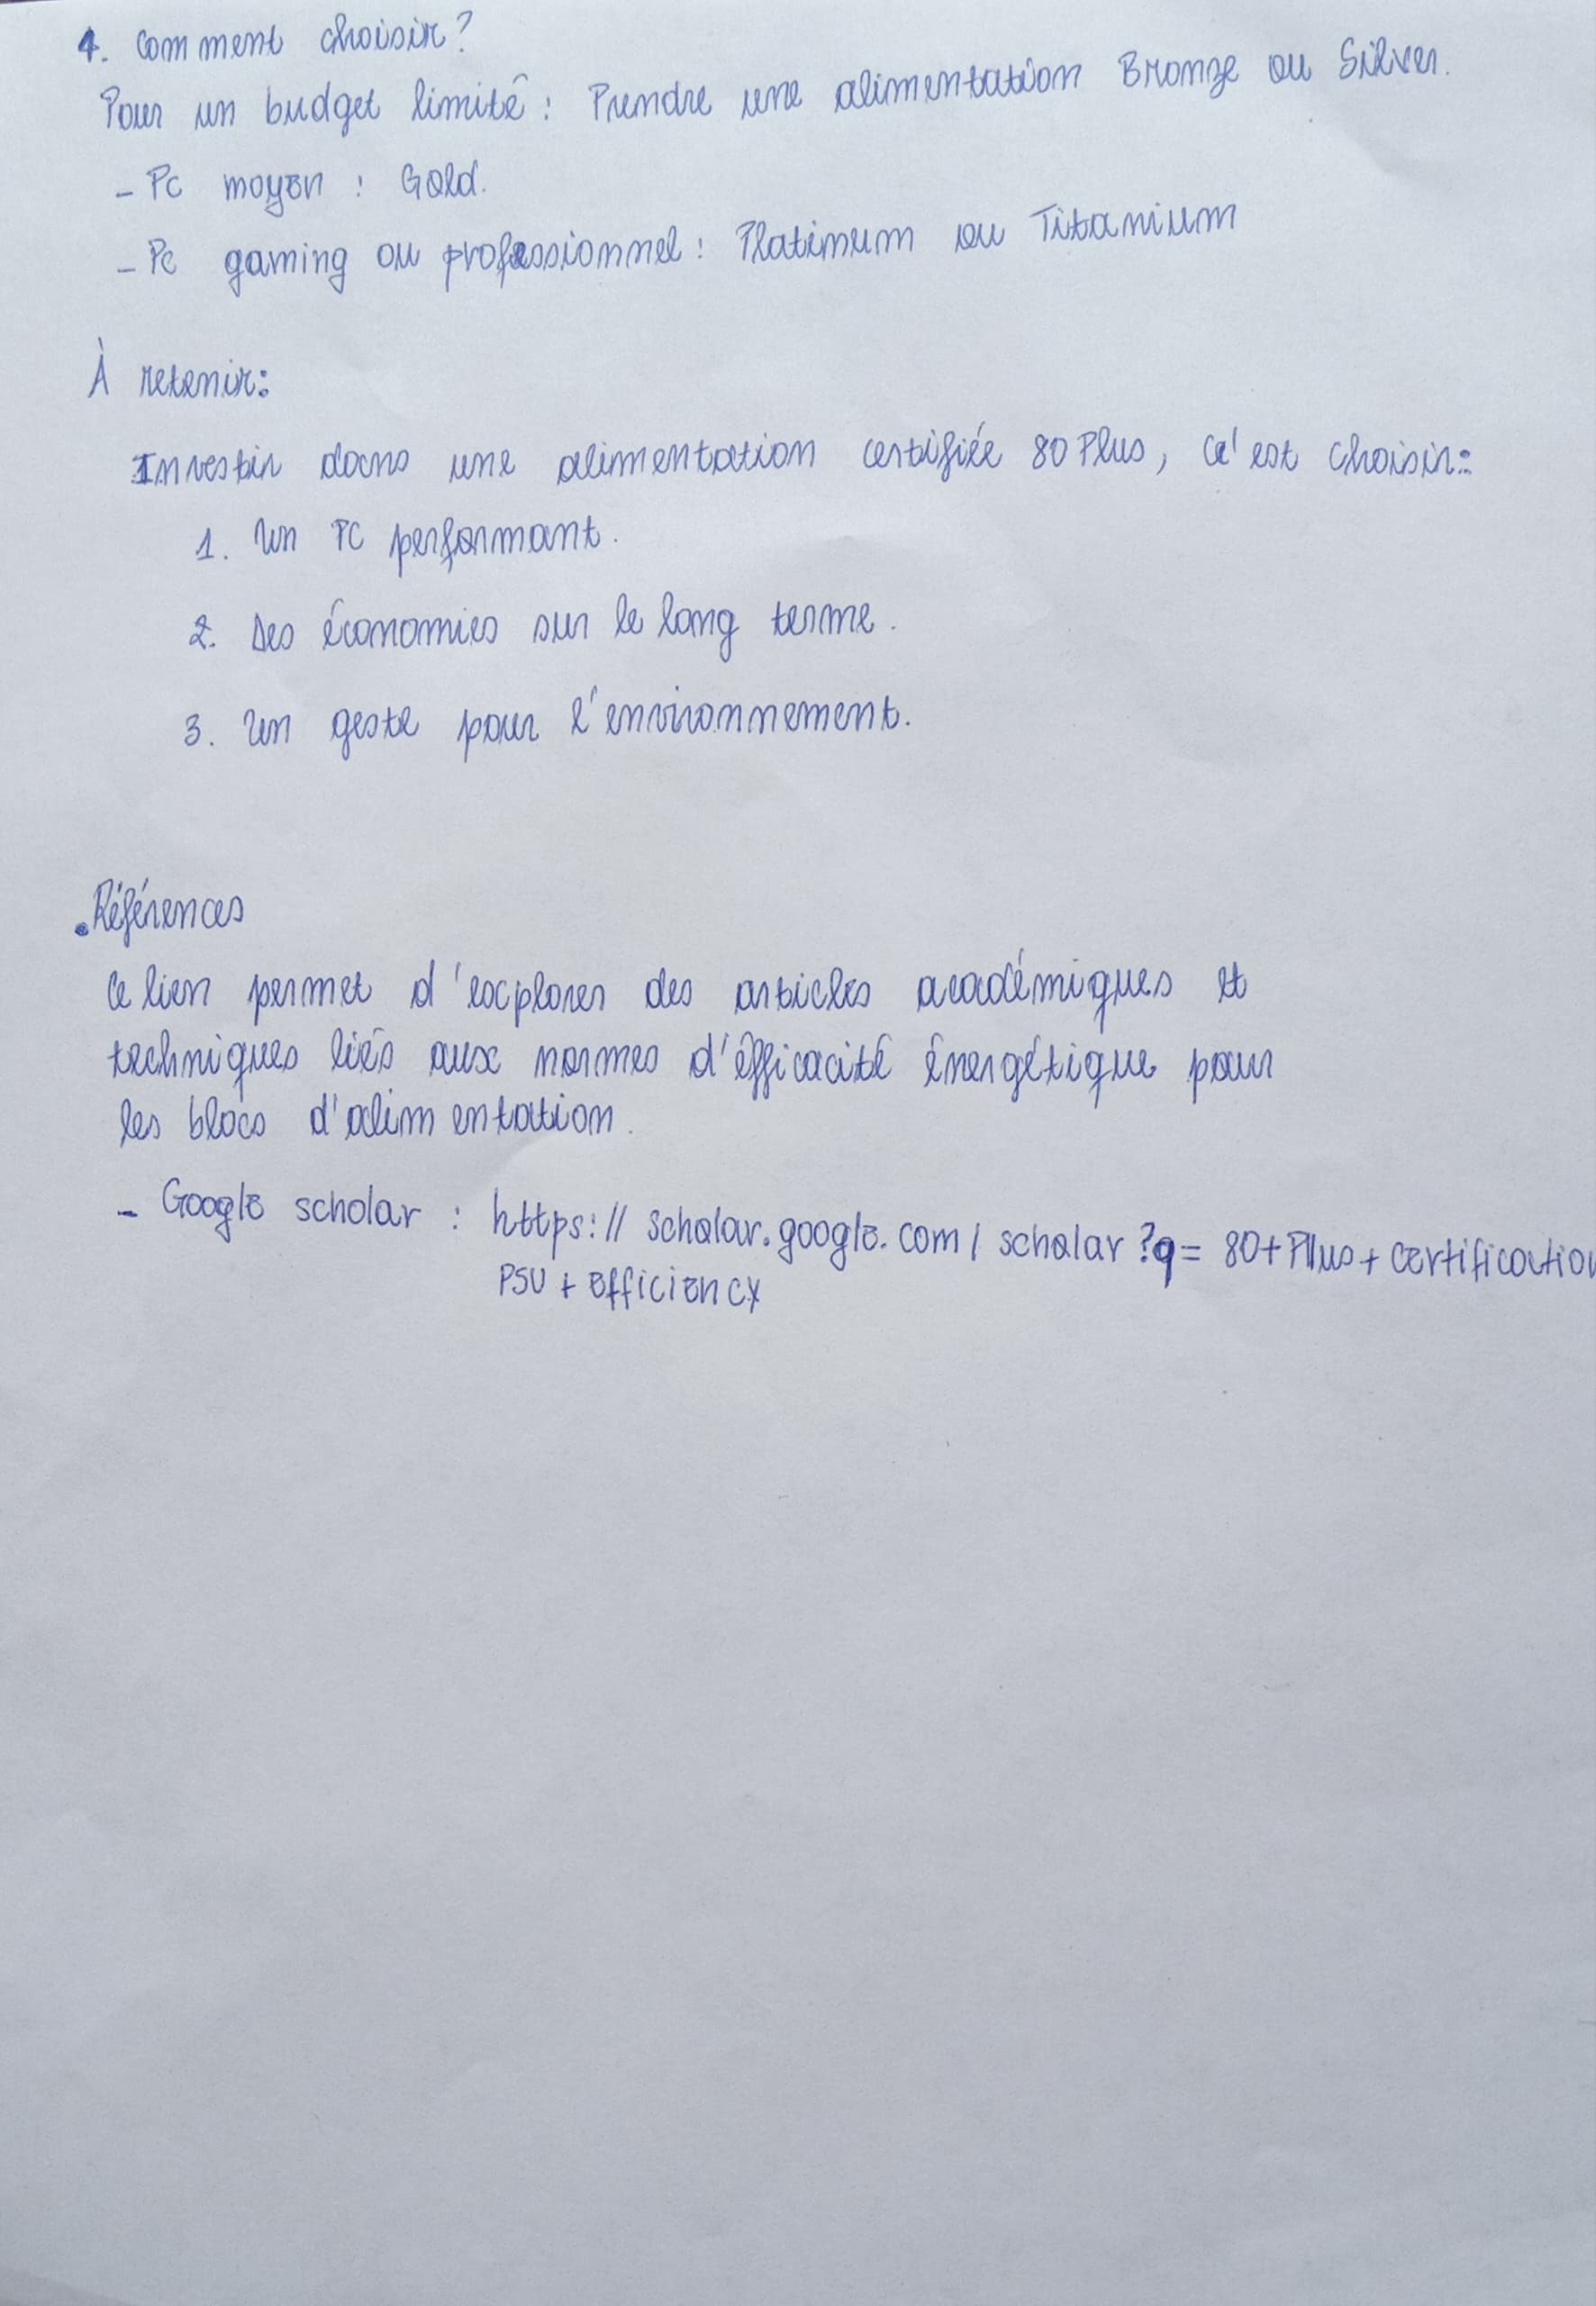 4. Comment choisir?
Pour un budget limité : Prendre une alimentation Bronze ou Silver.
- Pc moyen : Gold.
- Pc gaming ou professionnel : Platinum ou Titanium
À retenir:
Investir dans une alimentation certifiée 80 Plus, c'est choisir:
1. Un PC performant.
2. Des économies sur le long terme.
3. Un geste pour l'environnement.
. Références
Ce lien permet d'explorer des articles académiques et
techniques liés aux normes d'éfficacité énergétique pour
les blocs d'alimentation.
- Google scholar : https:// scholar.google.com/ scholar ?q= 80+Plus+certification
PSU + efficiency